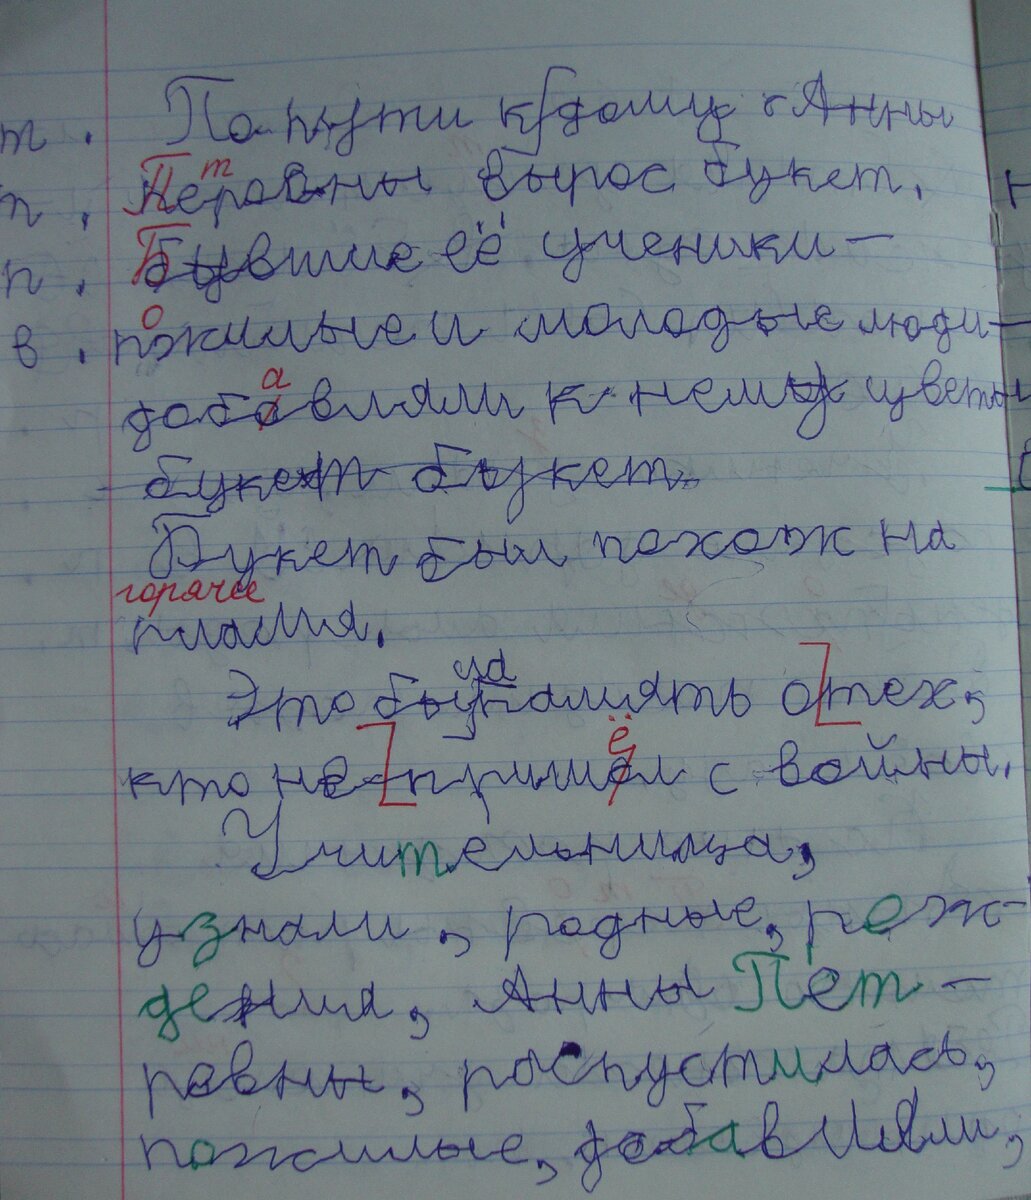 По пути к дому с Анны
Перовны вырос букет.
т
Бывшие её ученики —
пжилые и молодые люди —
о
добавляли к нему цветы
а
букет букет.
Букет был похож на
горячее
пламя.
Это была память о тех,
кто не пришёл с войны.
Учительница,
узнали, родные, рож-
дения, Анны Пет-
ровны, роспустилась,
пожилые, добавляли,
т.
п.
п.
в.